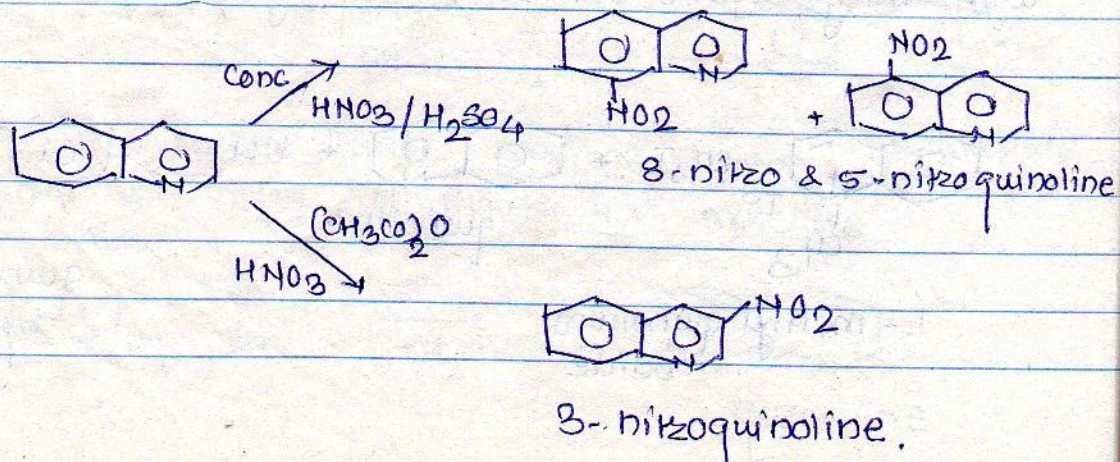 NO2
Conc
HNO3/H2SO4
N
N
NO2
+
N
8-nitro & 5-nitroquinoline
(CH3CO)2O
HNO3
NO2
N
3-nitroquinoline.